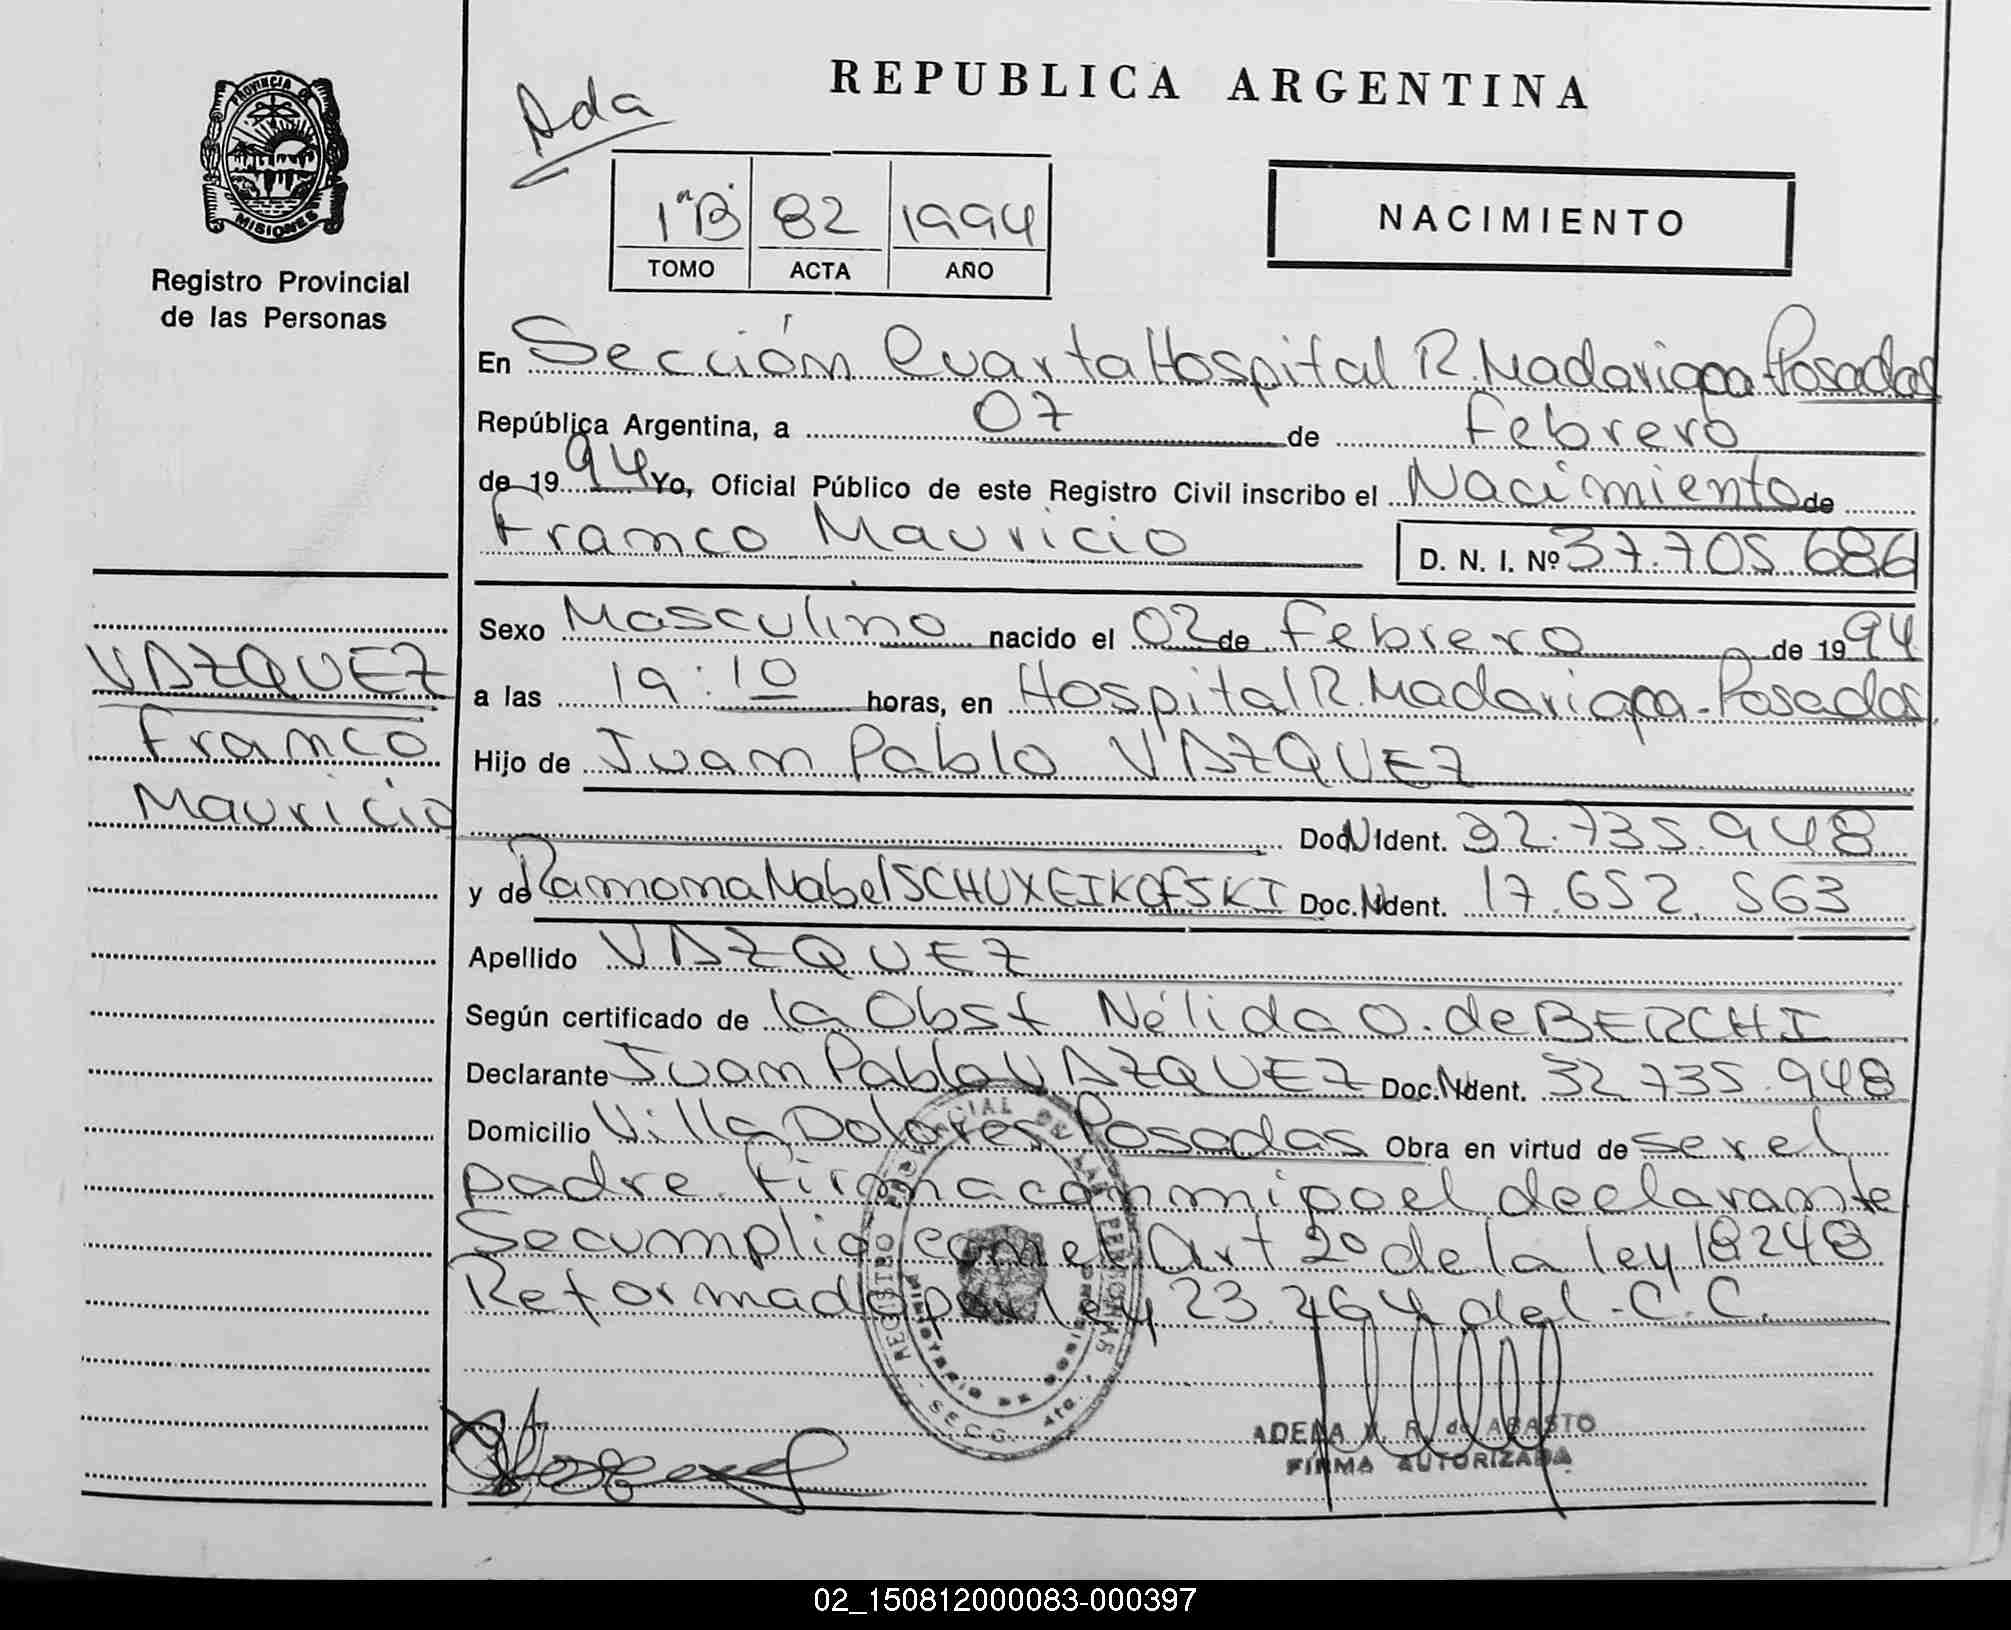 PROVINCIA DE
MISIONES
Registro Provincial
de las Personas
VAZQUEZ
Franco
Mauricio
REPUBLICA ARGENTINA
Ada
1ºB 82 1994
TOMO ACTA AÑO
NACIMIENTO
En Sección Cuarta Hospital R. Madariaga Posadas
República Argentina, a 07 de Febrero
de 1994 Yo, Oficial Público de este Registro Civil inscribo el Nacimiento de
Franco Mauricio D. N. I. Nº 37.705.686
Sexo Masculino nacido el 02 de Febrero de 1994
a las 19:10 horas, en Hospital R. Madariaga - Posadas
Hijo de Juan Pablo VAZQUEZ
Doc.N Ident. 32.735.948
y de Ramona Mabel Doc.N Ident. 17.652.563
Apellido VAZQUEZ
Según certificado de la Obst Nélida O. de BERCHI
Declarante Juan Pablo VAZQUEZ Doc.N Ident. 32.735.948
Domicilio Villa Dolores Posadas Obra en virtud de ser el
padre. Firma conmigo el declarante
Se cumplio con el Art 2º de la ley 18248
Reformada por ley 23.264 del C.C.
REGISTRO PROVINCIAL DE LAS PERSONAS
MINISTERIO DE GOBIERNO
SECC. 4ta.
ADELA R. de ABASTO
FIRMA AUTORIZADA
02_150812000083-000397